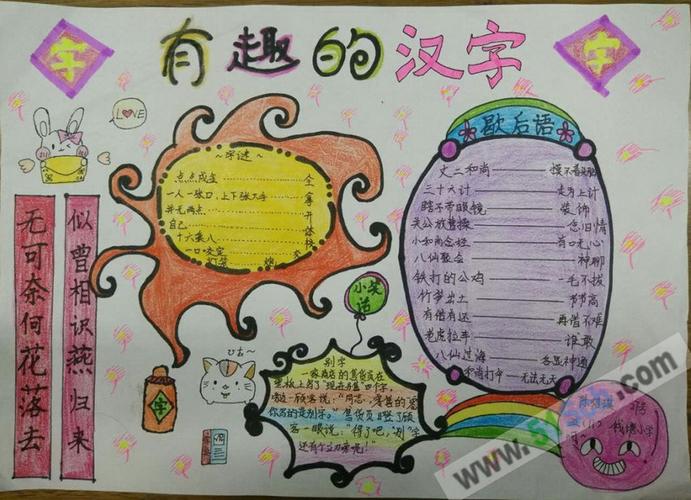 字
有趣的汉字
字
LOVE
无可奈何花落去
似曾相识燕归来
~字谜~
点点成金
全
一人一张口,上下张大手
拿
并无两点
开
自己
十六买八
一口咬定
交
歇后语
丈二和尚
三十六计
走为上计
瞎子带眼镜
装饰
关公放曹操
念旧情
小和尚念经
有口无心
八仙聚会
神聊
铁打的公鸡
一毛不拔
竹笋出土
节节高
有借有还
再借不难
老虎拉车
谁敢
八仙过海
各显神通
和尚打伞
无法无天
小笑话
字
别字
一家商店的售货员在
黑板上写了"现在另售"四个字,
一顾客说:"同志,零售的零
你写的是别字。"售货员瞪了顾
客一眼说:"得了吧,'别'字
还有个立刀旁呢!"